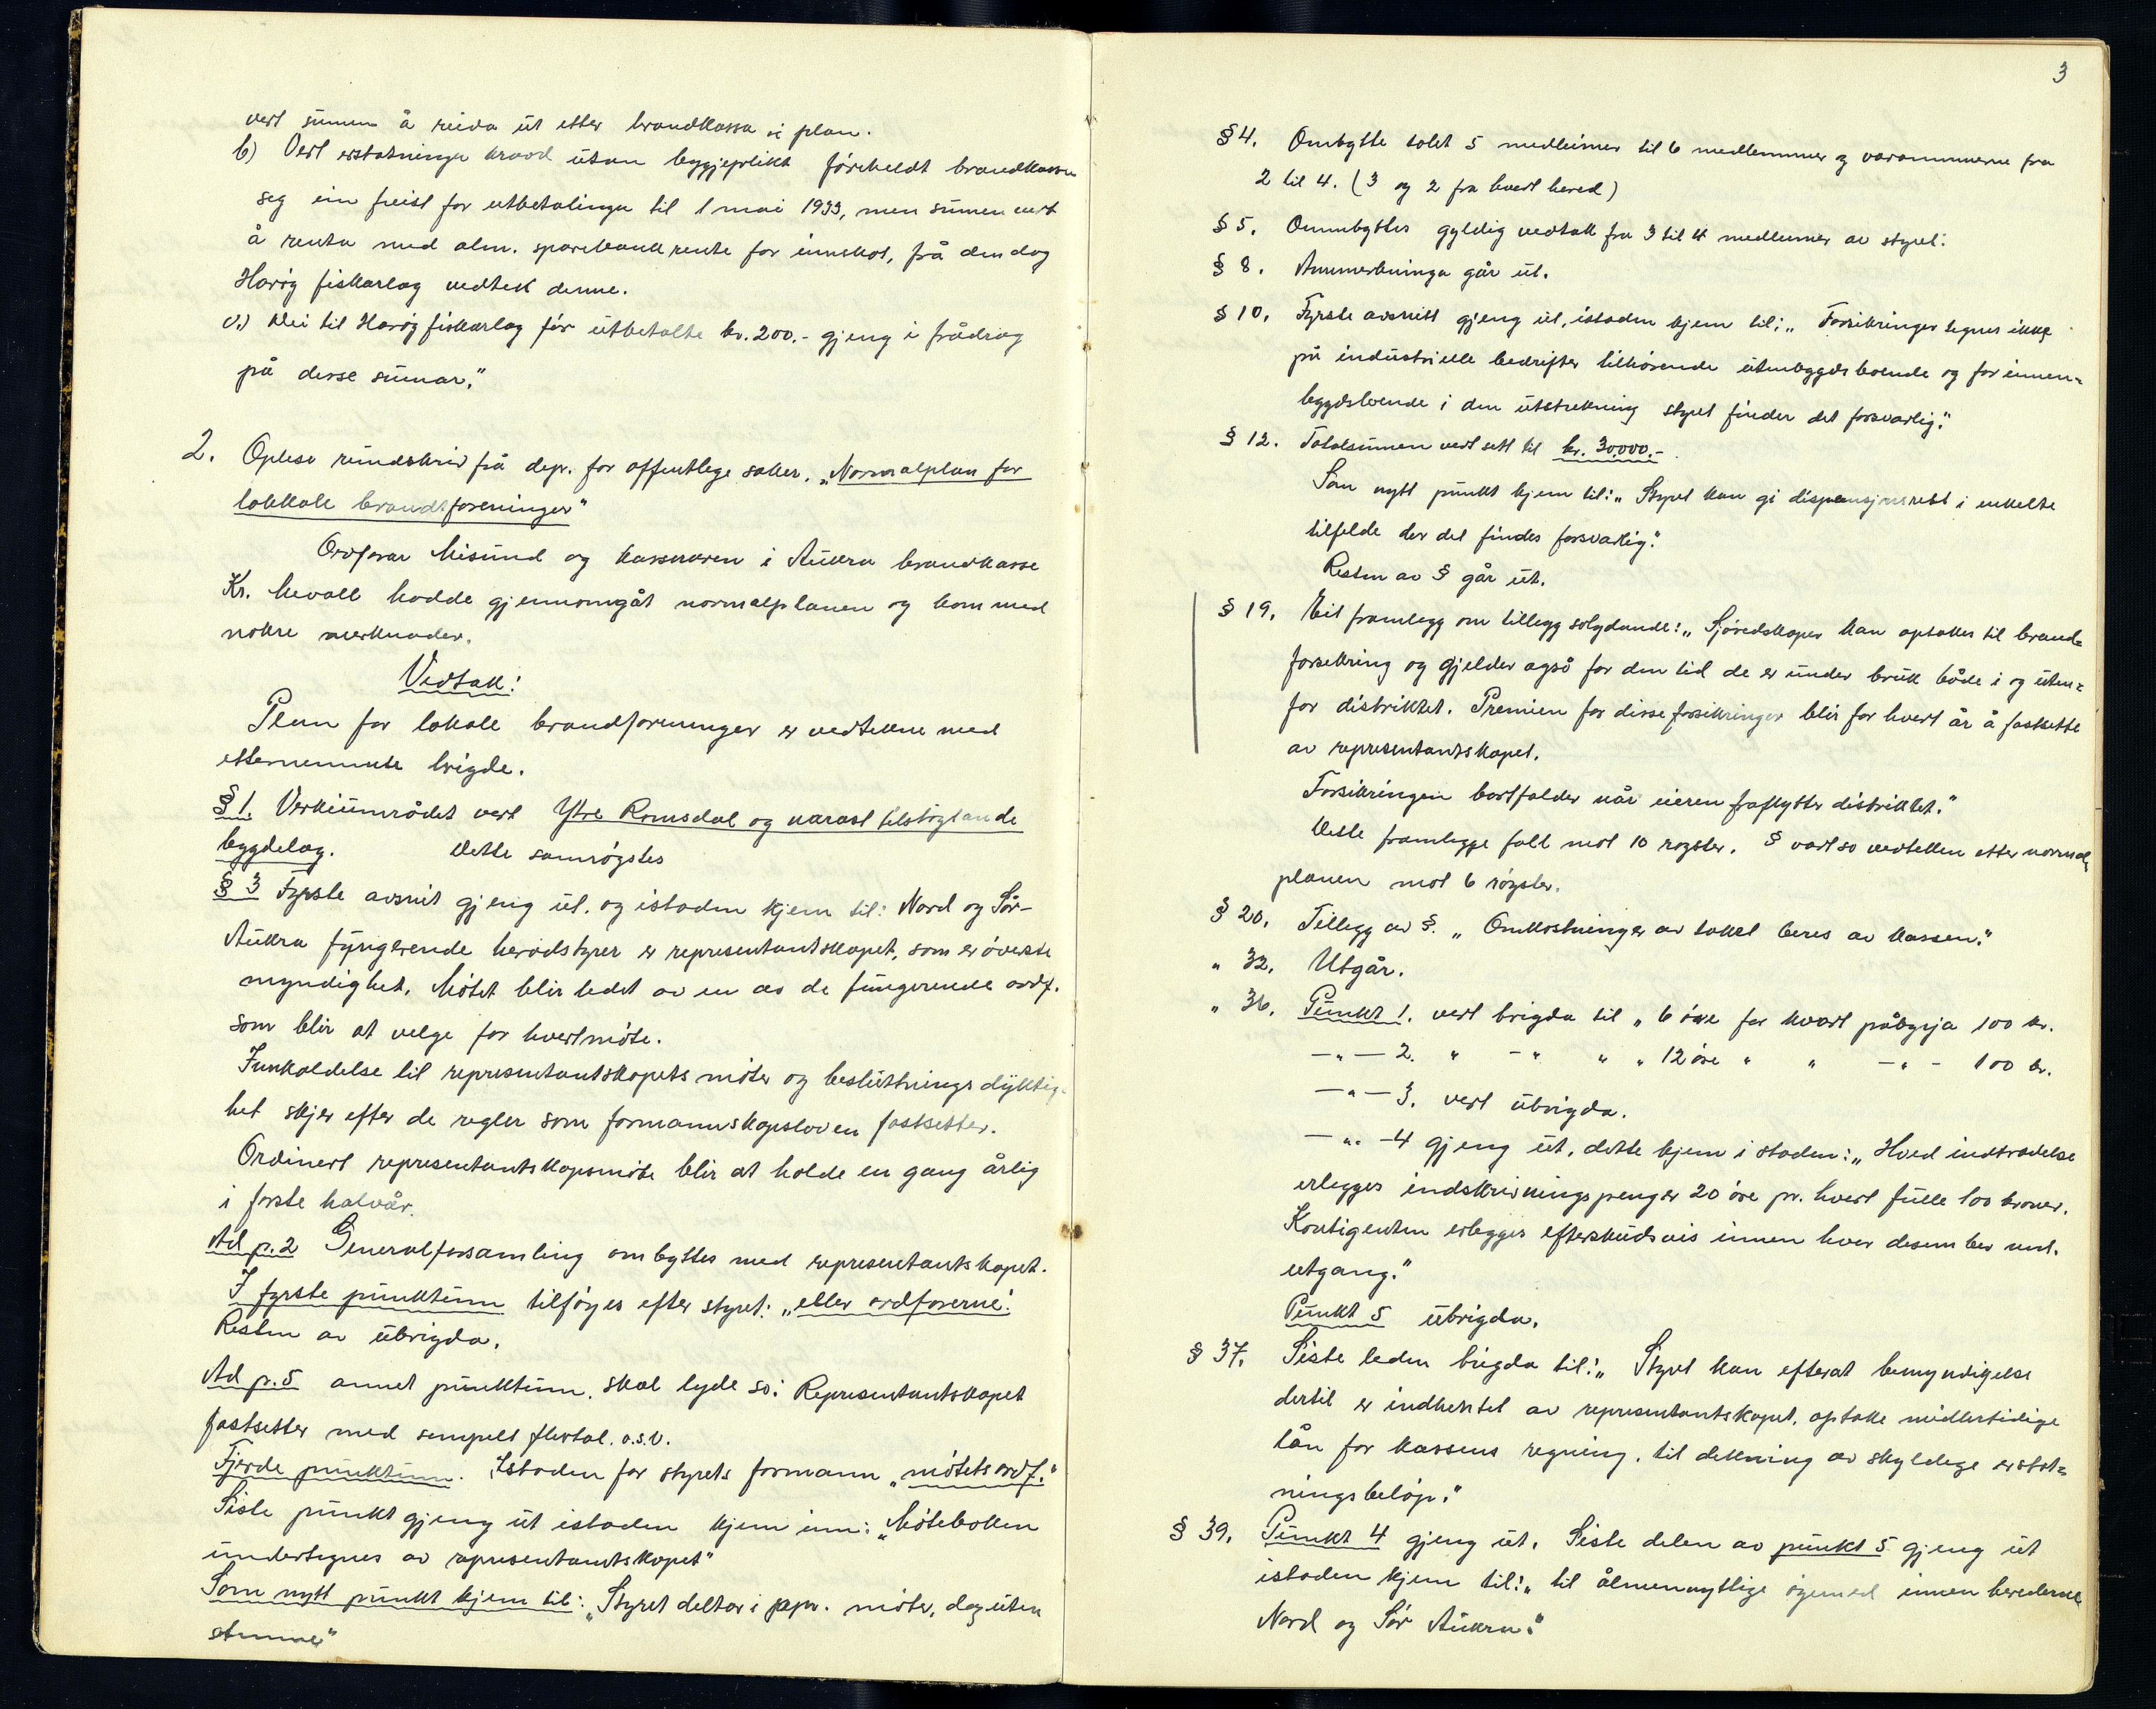 vert summen å reida ut etter brandkassa si plan.
b) Vert erstatninga kravd utan byggjeplikt fyreheldt brandkassen
seg ein freist for utbetalinga til 1 mai 1933, men sumen vert
å renta med alm. sparebankrente for innskot, frå den dag
Harøy fiskarlag vedtek denne.
c.) Dei til Harøy fiskarlag för utbetalte kr. 200.- gjeng i frådrag
på desse sumar."
2. Oplese rundskriv frå depr. for offentlege saker. "Normalplan for
lokkale brandforeninger"
Ordførar Misund og kasseraren i Aukra brandkasse
Kr. Mevoll hadde gjennomgåt normalplanen og kom med
nokre merknader.
Vedtak:
Plan for lokale brandforeninger er vedtekne med
etternemnte brigde.
§ 1. Verkeumrådet vert Ytre Romsdal og nærast tilstøytande
bygdelag. Dette samrøystes
§ 3 Fyrste avsnit gjeng ut. og istaden kjem til: Nord og Sør-
Aukra fungerende heradstyrer er representantskapet, som er øverste
myndighet. Møtet blir ledet av en av de fungerende ordf.
som blir at velge for hvert møte.
Innkaldelse til representantskapets møter og beslutningsdyktig-
het skjer efter de regler som formannskapsloven fastsetter.
Ordinert representantskapsmøte blir at holde en gang årlig
i første halvår.
Ad p.2 Generalforsamling ombyttes med representantskapet.
I fyrste punktum tilføyes efter styret: "eller ordførerne".
Resten av ubrigda.
Ad p.5 annet punktum. skal lyde so: Representantskapet
fastsetter med simpelt flertal. o.s.v.
Fjerde punktum. Istaden for styrets formann "møtets ordf."
Siste punkt gjeng ut istaden kjem inn: "Møteboken
undertegnes av representantskapet"
Som nytt punkt kjem til: "Styret deltar i repr. møter, dog uten
stemme"
3
§ 4. Ombytte talet 5 medleimer til 6 medlemmer og varamennerne fra
2 til 4. (3 og 2 fra hvert hered)
§ 5. Ommbyttes gyldig vedtak fra 3 til 4 medlemer av styret.
§ 8. Anmerkninga går ut.
§ 10. Fyrste avsnitt gjeng ut, istaden kjem til: "Forsikringer tegnes ikke
på industrielle bedrifter tilhørende utenbygds boende og for innen-
bygdsboende i den utstrekning styret finder det forsvarlig."
§ 12. Totalsumen vert sett til kr. 30,000.-
Som nytt punkt kjem til: "Styret kan gi dispensjonsrett i enkelte
tilfelde der det findes forsvarlig."
Resten av § går ut.
§ 19. Eit framlegg om tillegg solydande: "Sjøredskaper kan optakes til brand-
forsikring og gjelder også for den tid de er under bruk både i og uten-
for distriktet. Premien for disse forsikringer blir for hvert år å fastsette
av representantskapet.
Forsikringen bortfalder når eieren fraflytter distriktet."
Dette framlegge fall mot 10 røyster. § vart so vedteken etter normal-
planen mot 6 røyster.
§ 20. Tillegg av §. "Omkostninger av takst beres av kassen."
" 32. Utgår.
" 36. Punkt 1. vert brigda til "6 øre for kvart påbyrja 100 kr.
—"— 2. " -" " " 12 øre " " -"- 100 kr.
—"— 3. vert ubrigda.
—"— 4 gjeng ut, dette kjem i staden: "Hved indtrædelse
erlegges indskrivningspenger 20 øre pr. hvert fulle 100 kroner.
Kontigenten erlegges efterskudsvis innen hver desember mnd.
utgang."
Punkt 5 ubrigda.
§ 37. Siste leden brigda til: "Styret kan efterat bemyndigelse
dertil er indhentet av representantskapet, optake midlertidige
lån for kassens regning, til dekning av skyldege erstat-
ningsbeløp."
§ 39. Punkt 4 gjeng ut. Siste delen av punkt 5 gjeng ut
istaden kjem til: "til ålmennyttige øiemed innen herederne
Nord og Sør Aukra."